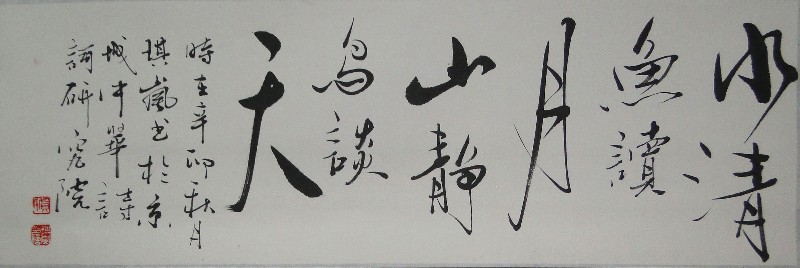 水清
魚讀
月
山靜
鳥談
天
時在辛卯秋月
琪嵐书於京
城中華詩
詞研究院